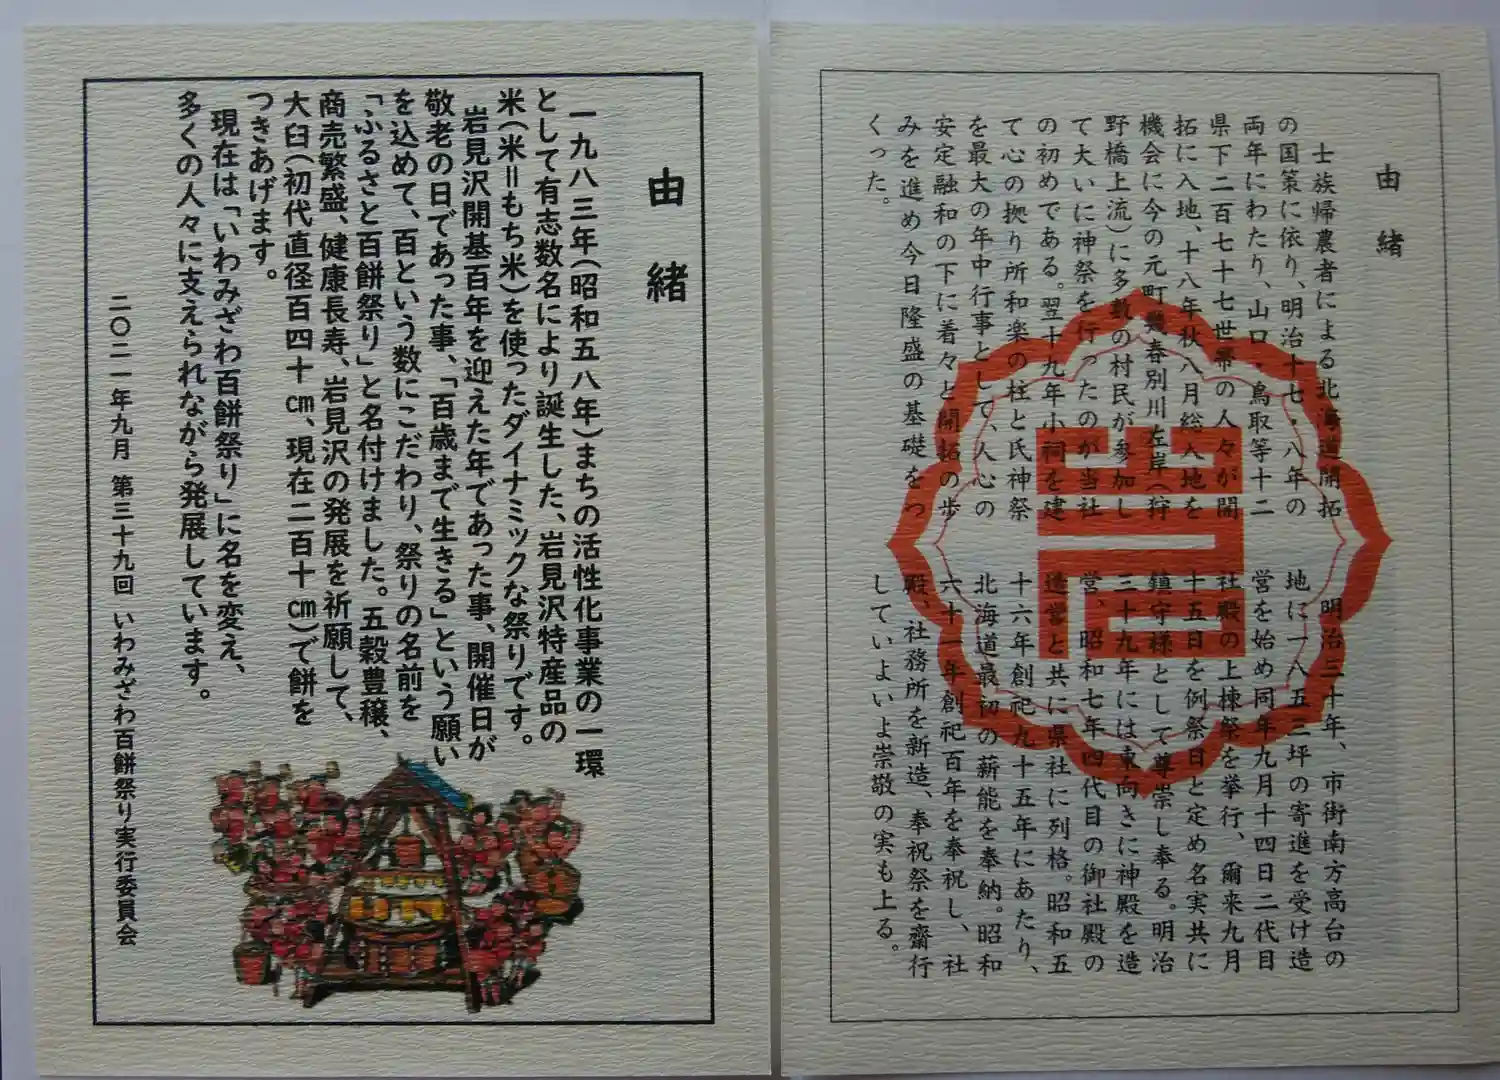 由緒
士族帰農者による北海道開拓
の国策に依り、明治十七・八年の
両年にわたり、山口・鳥取等十二
県下二百七十七世帯の人々が開
拓に入地、十八年秋八月総入地を
機会に今の元町幾春別川左岸(狩
野橋上流)に多数の村民が参加し
て大いに神祭を行ったのが当社
の初めである。翌十九年小祠を建
て心の拠り所和楽の柱と氏神祭
を最大の年中行事として、人心の
安定融和の下に着々と開拓の歩
みを進め今日隆盛の基礎をつ
くった。
明治三十年、市街南方高台の
地に一八五三坪の寄進を受け造
営を始め同年九月十四日二代目
社殿の上棟祭を挙行、爾来九月
十五日を例祭日と定め名実共に
鎮守様として尊崇し奉る。明治
三十九年には東向きに神殿を造
営、昭和七年四代目の御社殿の
造営と共に県社に列格。昭和五
十六年創祀九十五年にあたり、
北海道最初の薪能を奉納。昭和
六十一年創祀百年を奉祝し、社
殿、社務所を新造、奉祝祭を齋行
していよいよ崇敬の実も上る。
由緒
一九八三年(昭和五八年)まちの活性化事業の一環
として有志数名により誕生した、岩見沢特産品の
米(米=もち米)を使ったダイナミックな祭りです。
岩見沢開基百年を迎えた年であった事、開催日が
敬老の日であった事、「百歳まで生きる」という願い
を込めて、百という数にこだわり、祭りの名前を
「ふるさと百餅祭り」と名付けました。五穀豊穣、
商売繁盛、健康長寿、岩見沢の発展を祈願して、
大臼(初代直径百四十cm、現在二百十cm)で餅を
つきあげます。
現在は「いわみざわ百餅祭り」に名を変え、
多くの人々に支えられながら発展しています。
二〇二一年九月 第三十九回 いわみざわ百餅祭り実行委員会